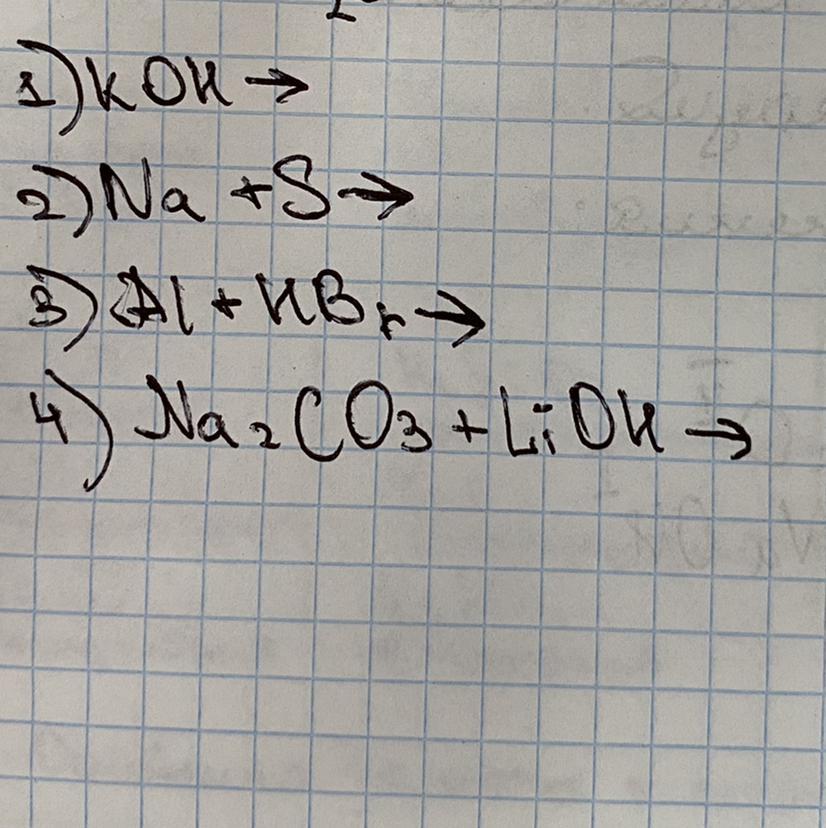 1) KOH →
2) Na + S →
3) Al + HBr →
4) Na₂CO₃ + LiOH →